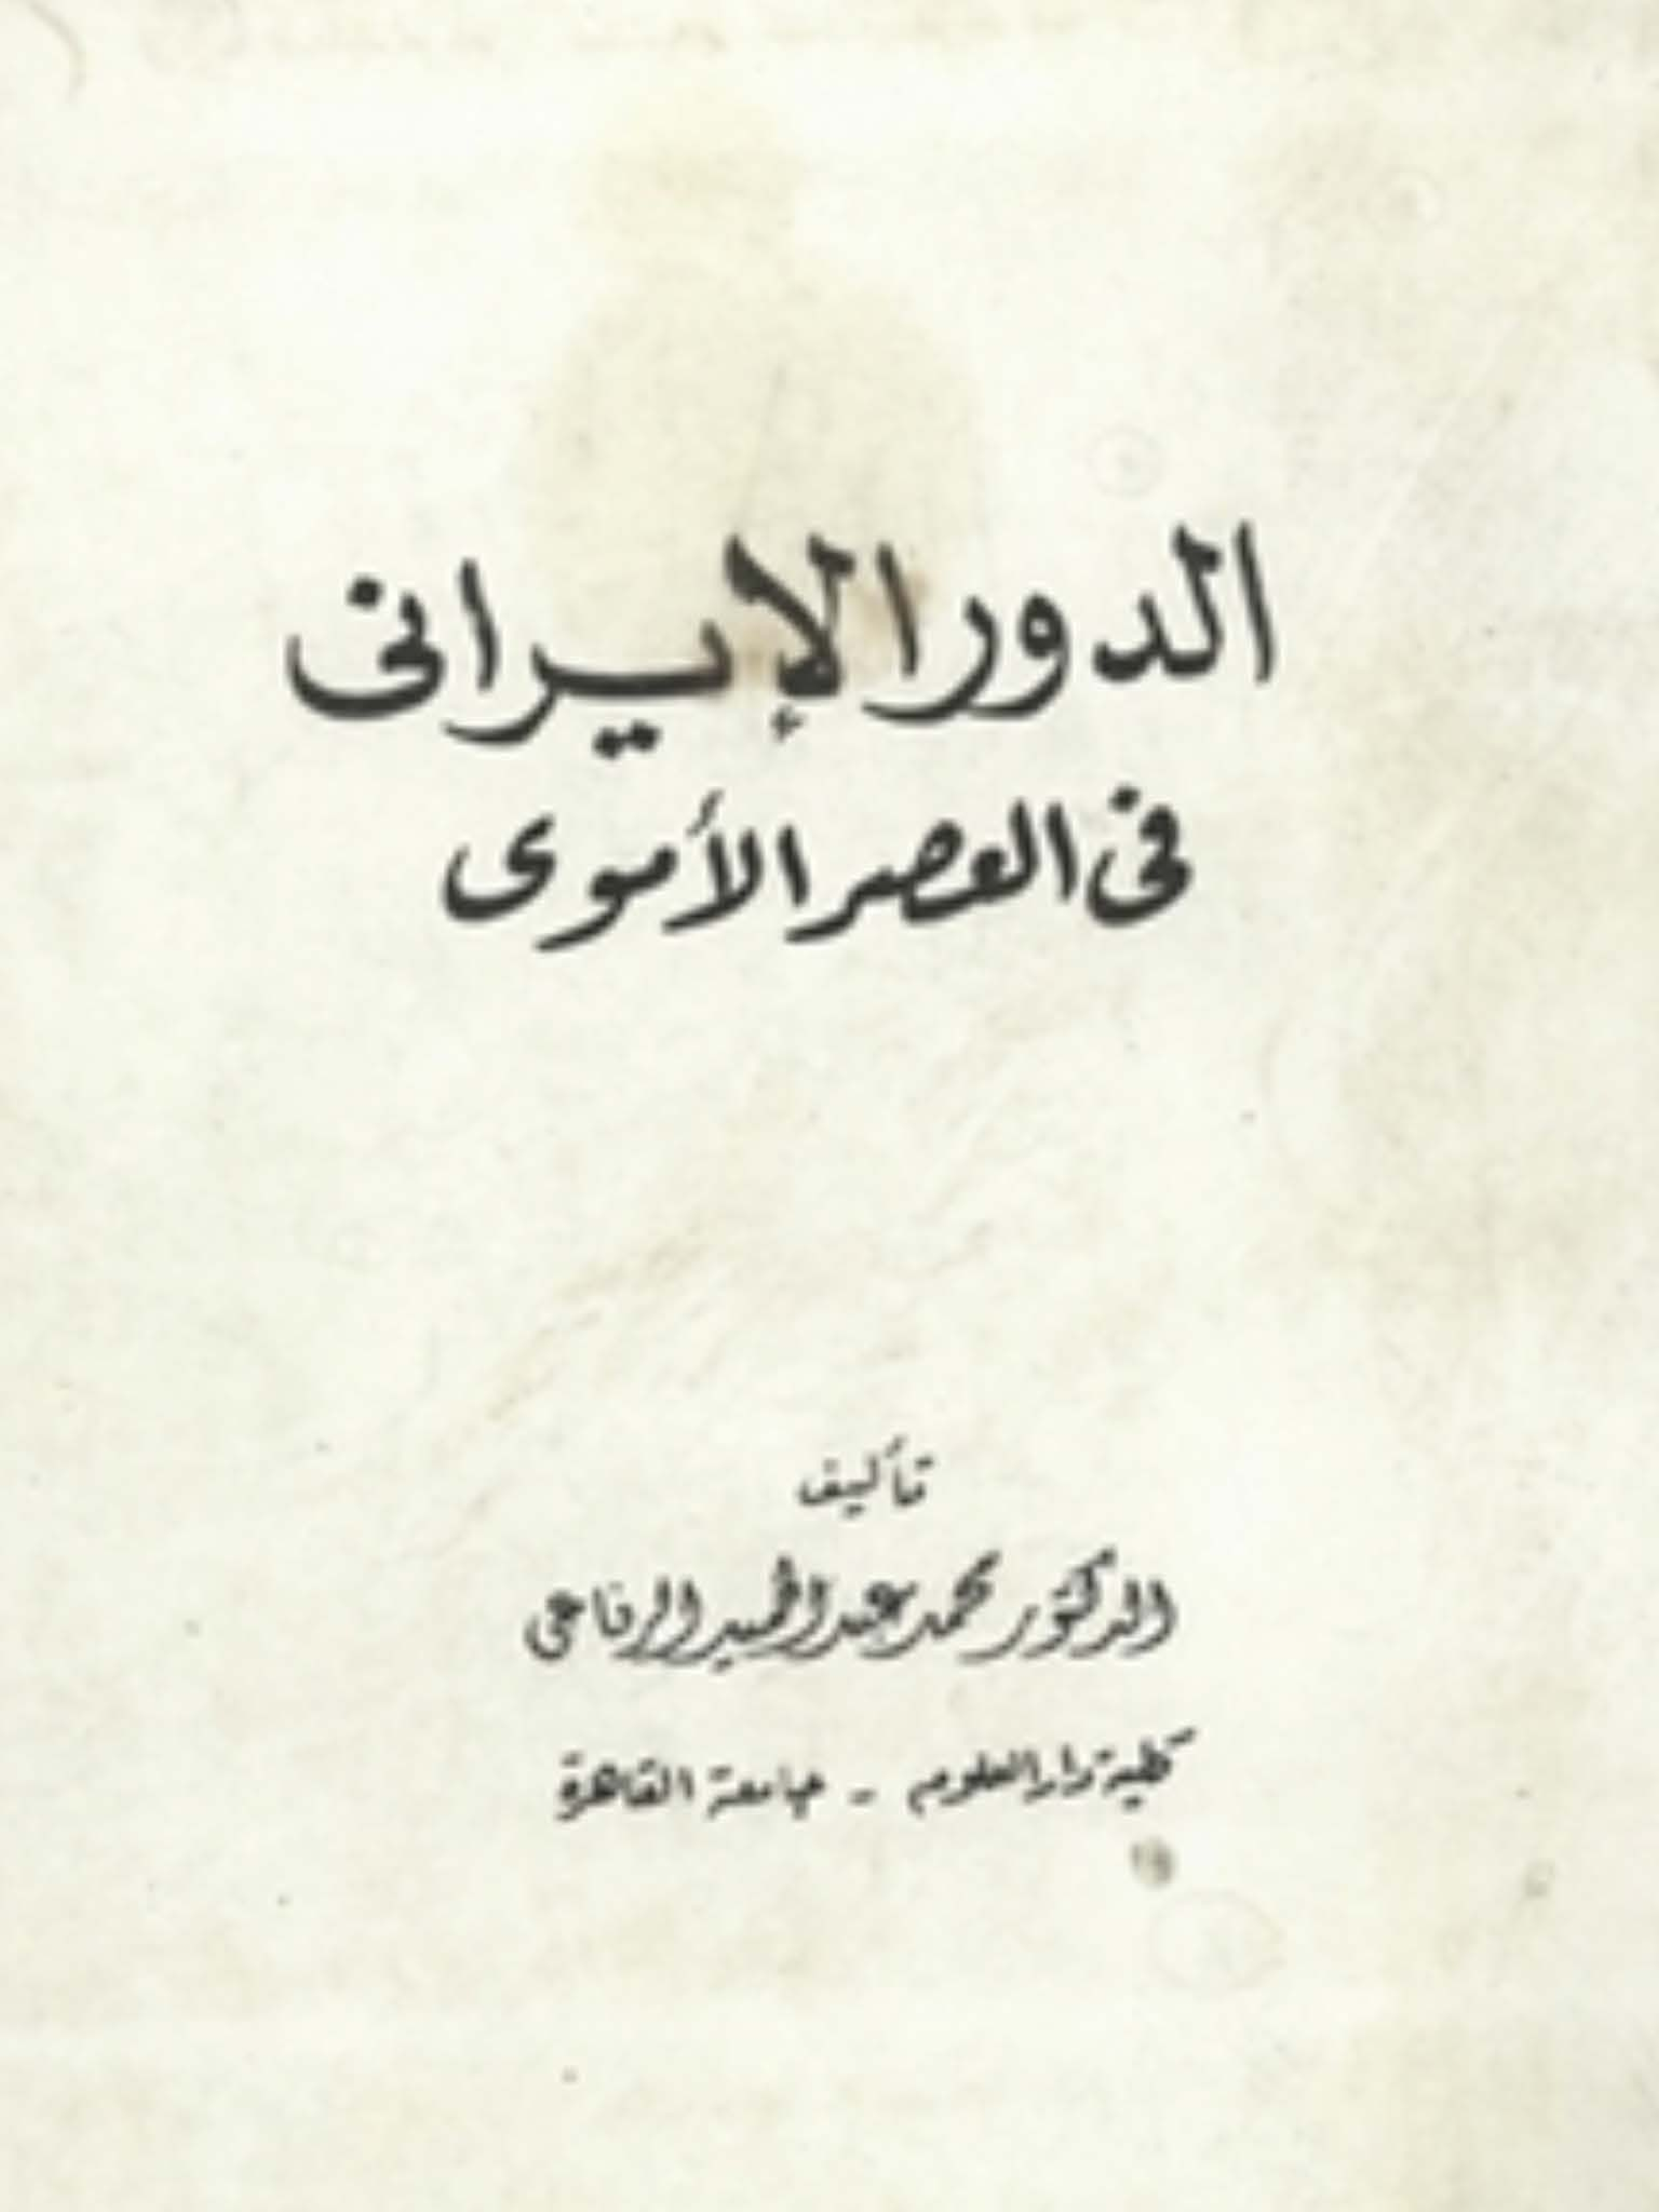 الدور الإيرانى
فى العصر الأموى
تأليف
الدكتور محمد عبد الحميد الرفاعى
كلية دار العلوم - جامعة القاهرة